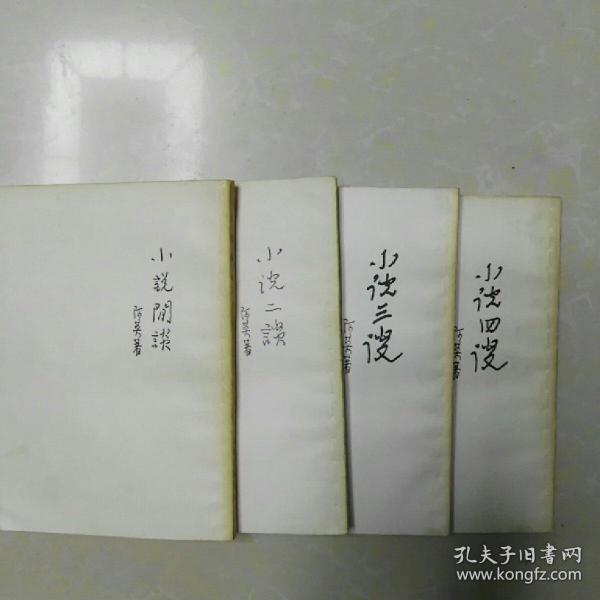 小說閒談
阿英著
小说二談
阿英著
小说三谈
阿英著
小说四谈
阿英著
孔夫子旧书网
www.kongfz.com